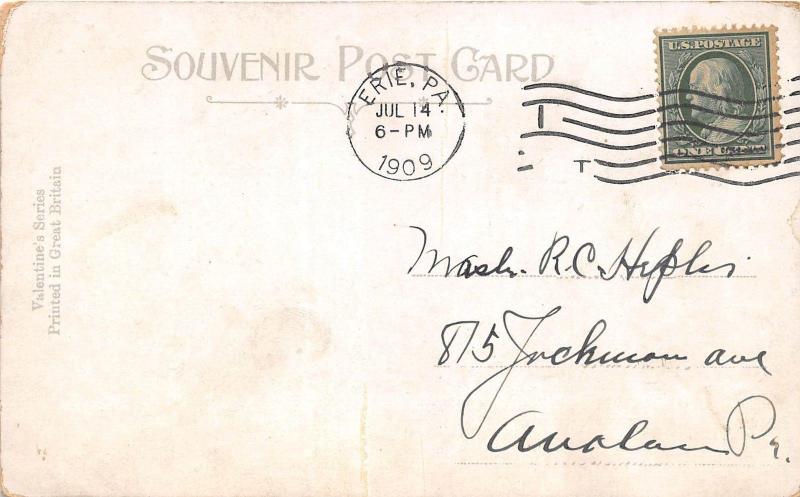 SOUVENIR POST CARD
ERIE, PA.
JUL 14
6-PM
1909
T
U.S. POSTAGE
ONE CENT
Valentine's Series
Printed in Great Britain
Mastr. R.C.
815 Jackman ave
Avalon Pa.